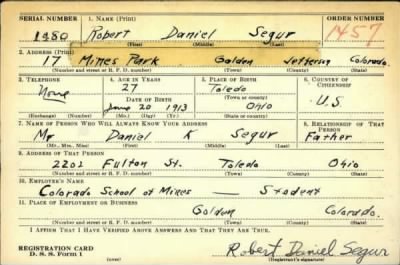 SERIAL NUMBER 1. NAME (Print) ORDER NUMBER
1480 Robert Daniel Segur 1457
(First) (Middle) (Last)
2. ADDRESS (Print)
17 Mines Park Golden Jefferson Colorado.
(Number and street or R. F. D. number) (Town) (County) (State)
3. TELEPHONE 4. AGE IN YEARS 5. PLACE OF BIRTH 6. COUNTRY OF CITIZENSHIP
None 27 Toledo
DATE OF BIRTH (Town or county)
20 1913 Ohio U.S
(Exchange) (Number) (Mo.) (Day) (Yr.) (State or country)
7. NAME OF PERSON WHO WILL ALWAYS KNOW YOUR ADDRESS 8. RELATIONSHIP OF THAT PERSON
Mr Daniel K Segur Father
(Mr., Mrs., Miss) (First) (Middle) (Last)
9. ADDRESS OF THAT PERSON
2201 Fulton St. Toledo Ohio
(Number and street or R. F. D. number) (Town) (County) (State)
10. EMPLOYER'S NAME
Colorado School of Mines — Student
11. PLACE OF EMPLOYMENT OR BUSINESS
Golden Colorado.
(Number and street or R. F. D. number) (Town) (County) (State)
I AFFIRM THAT I HAVE VERIFIED ABOVE ANSWERS AND THAT THEY ARE TRUE.
REGISTRATION CARD
D. S. S. Form 1 (over) Robert Daniel Segur
(Registrant's signature)